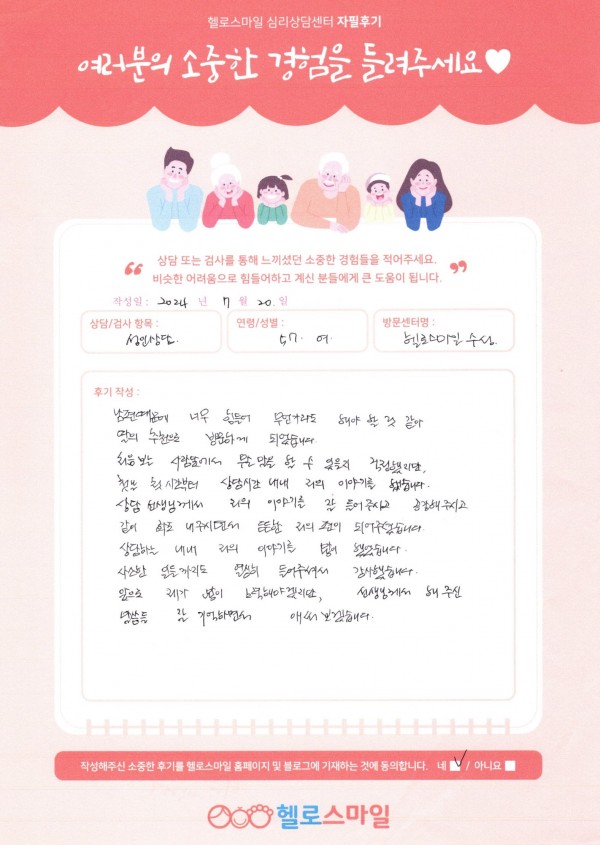 헬로스마일 심리상담센터 자필후기
여러분의 소중한 경험을 들려주세요♥
상담 또는 검사를 통해 느끼셨던 소중한 경험들을 적어주세요.
비슷한 어려움으로 힘들어하고 계신 분들에게 큰 도움이 됩니다.
작성일 : 2024 년 7 월 20 일
상담/검사 항목 :
성인상담.
연령/성별 :
57. 여.
방문센터명 :
헬로스마일 수성
후기 작성 :
남편때문에 너무 힘들어 무언가라도 해야 할 것 같아
딸의 추천으로 방문하게 되었습니다.
처음보는 사람앞에서 무슨 말을 할 수 있을지 걱정했지만,
첫 시간부터 상담시간 내내 저의 이야기를 했습니다.
상담 선생님께서 저의 이야기를 잘 들어주시고 공감해주시고
같이 화도 내주시면서 든든한 저의 편이 되어주셨습니다.
상담하는 내내 저의 이야기를 많이 했었습니다.
사소한 일들까지도 열심히 들어주셔서 감사했습니다.
앞으로 제가 많이 노력해야겠지만, 선생님께서 해 주신
말씀들 잘 기억하면서 애써 보겠습니다.
작성해주신 소중한 후기를 헬로스마일 홈페이지 및 블로그에 기재하는 것에 동의합니다. 네 ✓ / 아니요
헬로스마일